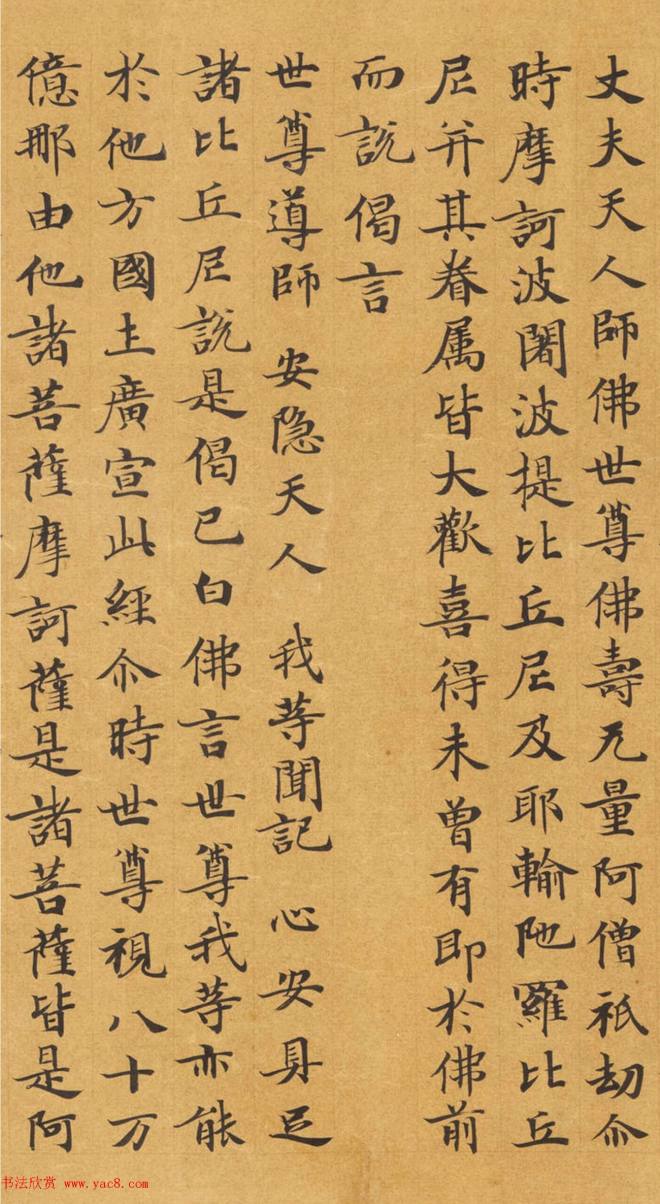 丈夫天人師佛世尊佛壽无量阿僧祇劫尒
時摩訶波闍波提比丘尼及耶輸陁羅比丘
尼并其眷属皆大歡喜得未曾有即於佛前
而說偈言
世尊導師 安隐天人 我等聞記 心安具足
諸比丘尼說是偈已白佛言世尊我等亦能
於他方國土廣宣此經尒時世尊視八十万
億那由他諸菩薩摩訶薩是諸菩薩皆是阿
书法欣赏 www.yac8.com